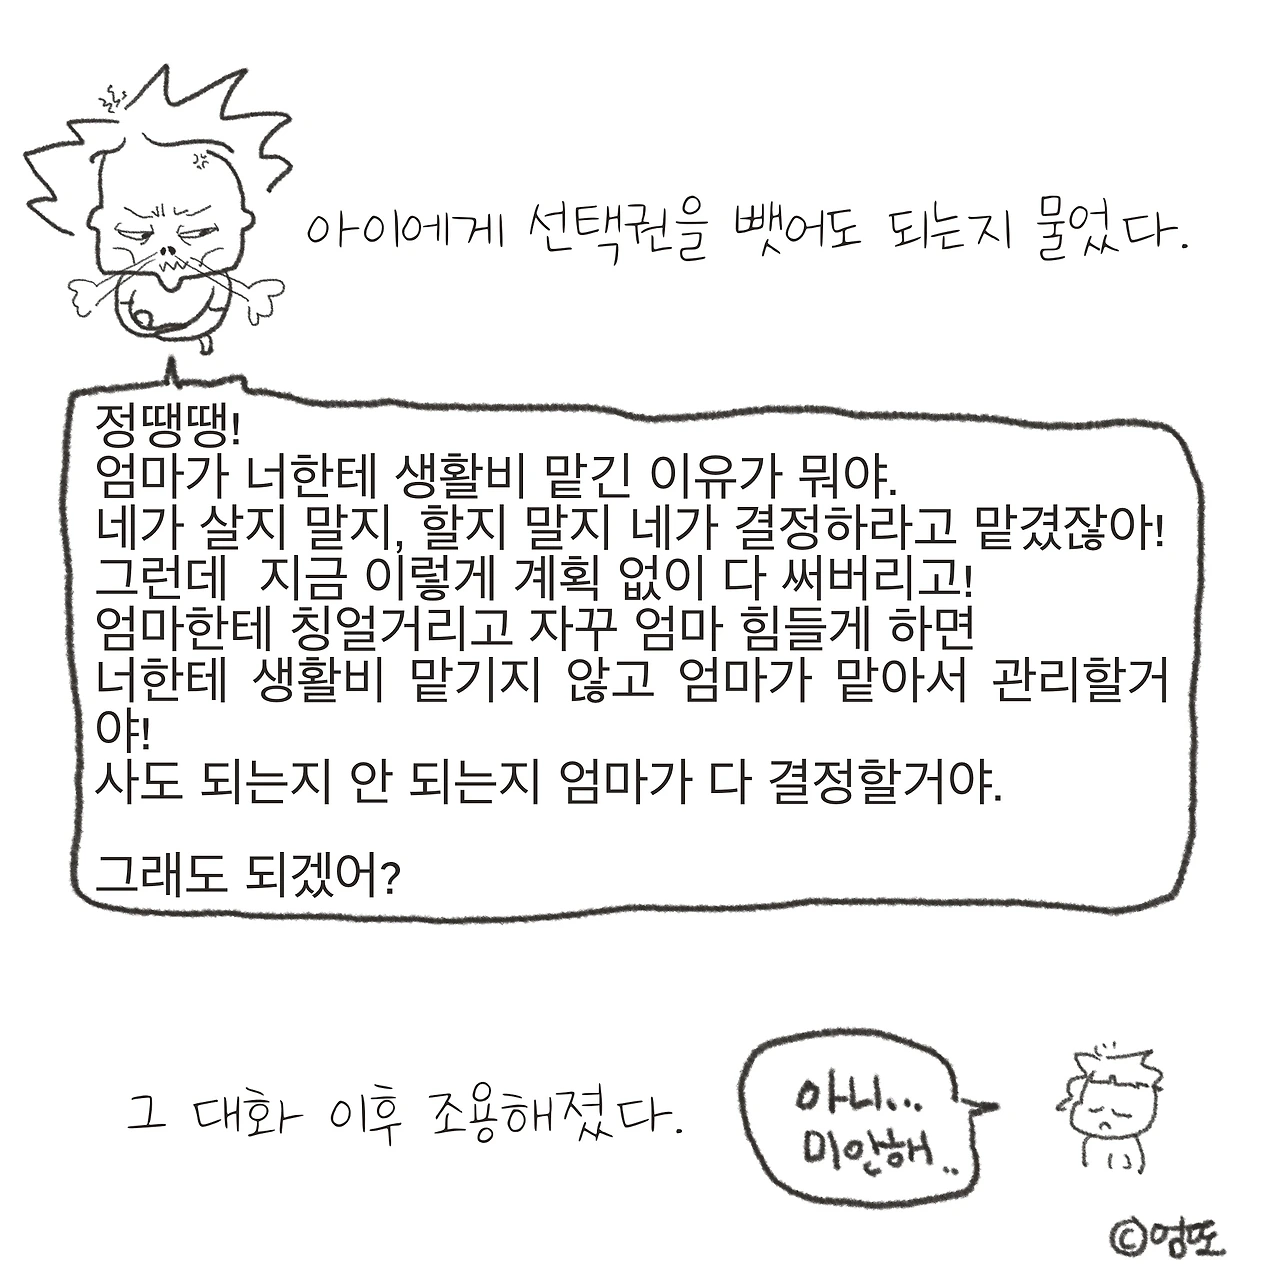 아이에게 선택권을 뺏어도 되는지 물었다.
정땡땡!
엄마가 너한테 생활비 맡긴 이유가 뭐야.
네가 살지 말지, 할지 말지 네가 결정하라고 맡겼잖아!
그런데 지금 이렇게 계획 없이 다 써버리고!
엄마한테 칭얼거리고 자꾸 엄마 힘들게 하면
너한테 생활비 맡기지 않고 엄마가 맡아서 관리할거
야!
사도 되는지 안 되는지 엄마가 다 결정할거야.
그래도 되겠어?
그 대화 이후 조용해졌다.
아니...
미안해..
©엉또